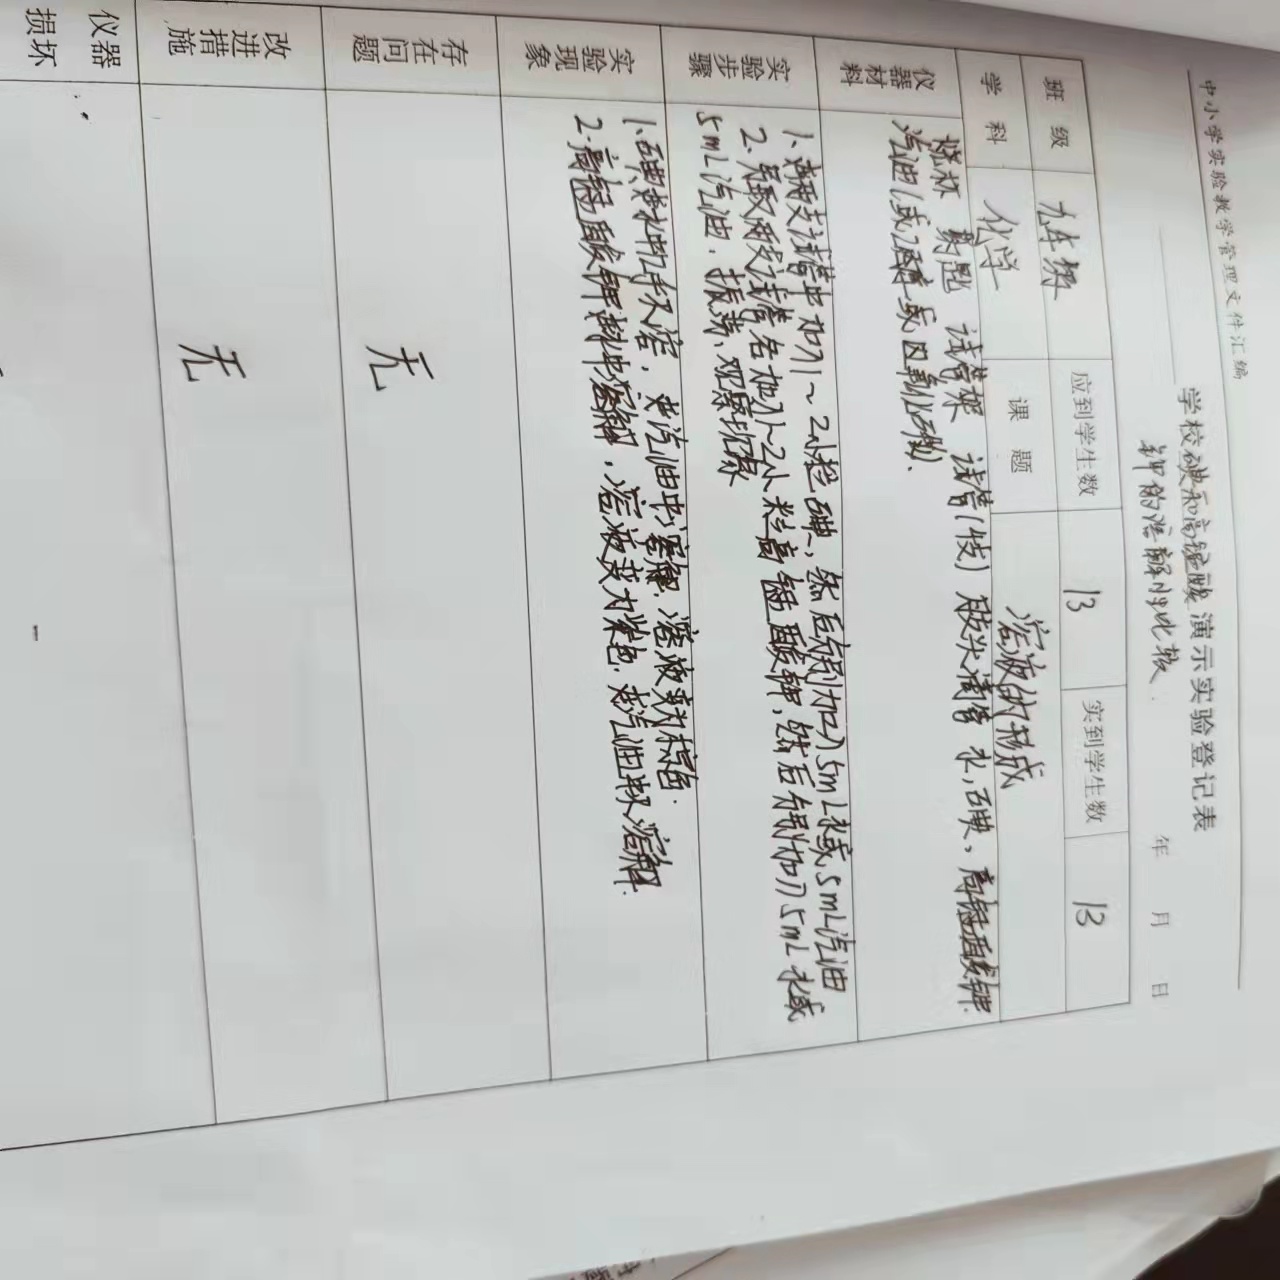 中小学实验教学管理文件汇编
学校碘和高锰酸演示实验登记表
钾的溶解性比较.
年 月 日
班级 九年级 应到学生数 13 实到学生数 13
学科 化学 课题 溶液的形成
仪器材料
烧杯 药匙 试管架 试管(4支) 胶头滴管 水,碘、高锰酸钾.
汽油(或酒精或四氯化碳)、
实验步骤
1、在两支试管中加入1~2小粒碘,然后分别加入5mL水或5mL汽油
2、另取两支试管各加入1~2小粒高锰酸钾,然后分别加入5mL水或
5mL汽油.振荡、观察现象
实验现象
1、碘在水中几乎不溶,在汽油中溶解.溶液变为棕色.
2.高锰酸钾在水中溶解,溶液变为紫色.在汽油中不溶解.
存在问题
无
改进措施
无
仪器
损坏